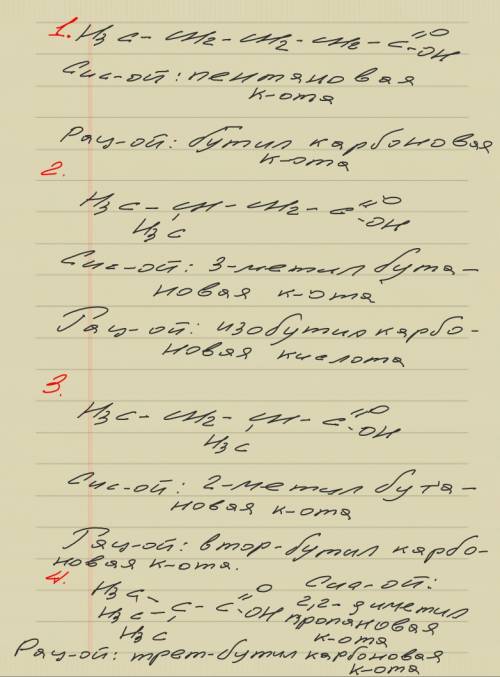 1. H3C - CH2 - CH2 - CH2 - C =O -OH
Сис-ой: пентановая
к-ота
Рац-ой: бутил карбоновая
к-ота
2.
H3C - CH - CH2 - C =O -OH
H3C
Сис-ой: 3-метил бута-
новая к-ота
Рац-ой: изобутил карбо-
новая кислота
3.
H3C - CH2 - CH - C =O -OH
H3C
Сис-ой: 2-метил бута-
новая к-ота
Рац-ой: втор-бутил карбо-
новая к-ота.
4.
H3C
H3C - C - C =O -OH
H3C
Сис-ой:
2,2-диметил
пропановая
к-ота
Рац-ой: трет-бутил карбоновая
к-ота